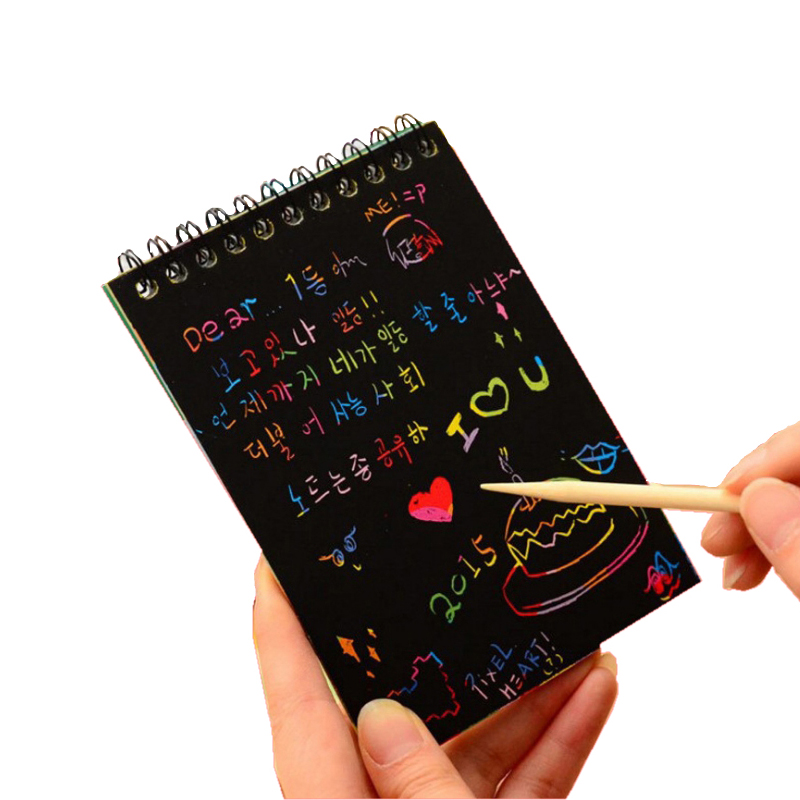 ME! =P
Dear... 1등
보고있나 일등!!
언제까지 네가 일등 할 줄 아냐~
더불어 사는 사회
노트는 좀 공유하
I U
2015
PIXEL
HEART!
(?)